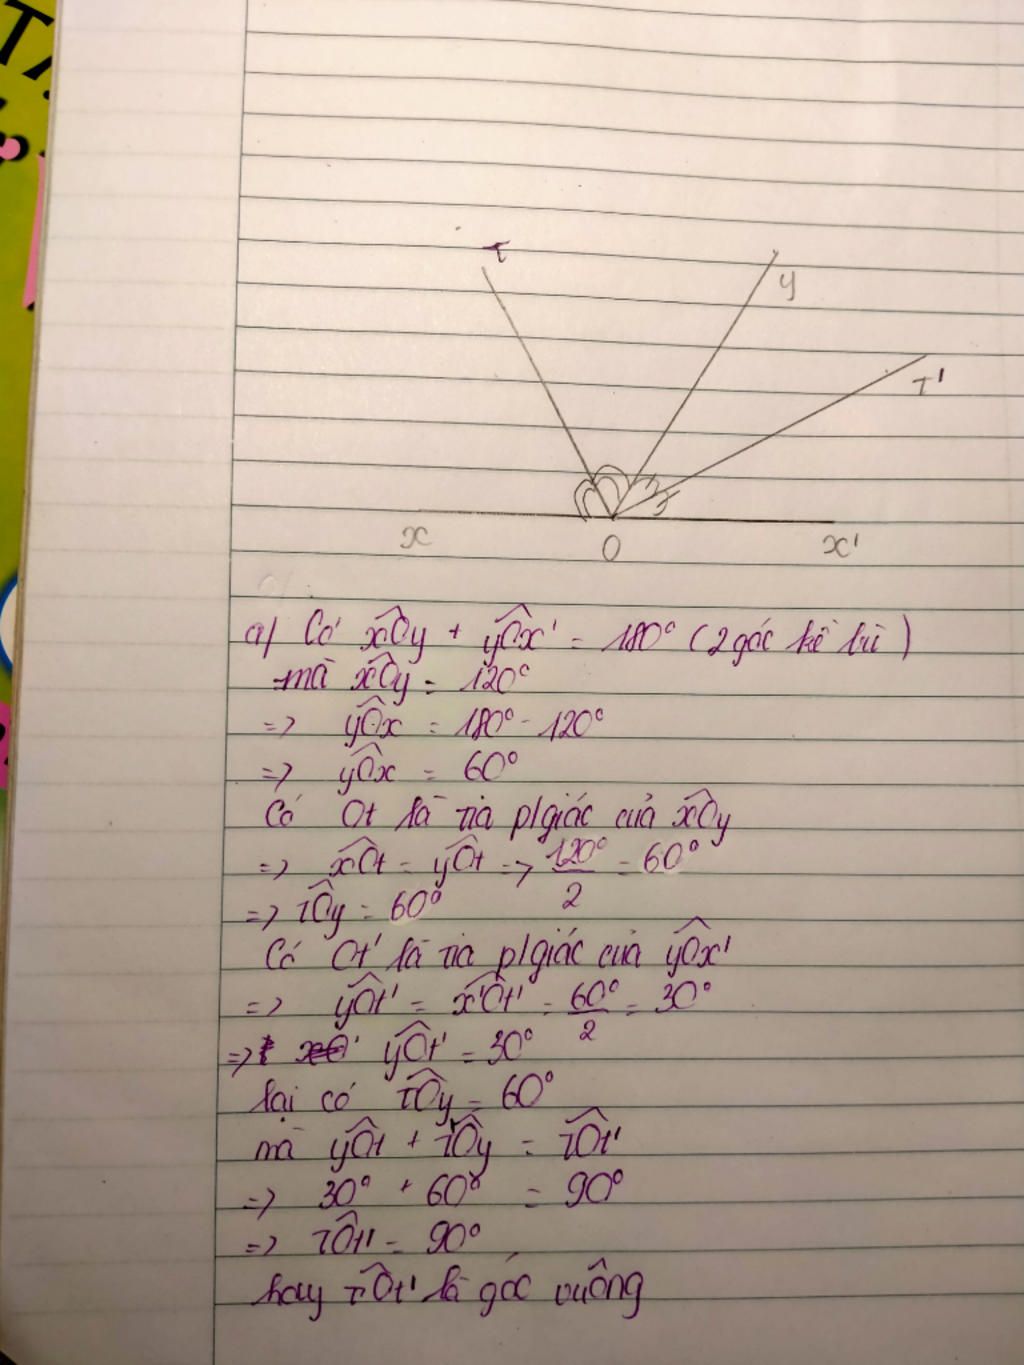 t
y
t'
x
O
x'
a/ Có x̂Oy + ŷOx' = 180° (2 góc kề bù)
mà x̂Oy = 120°
=> ŷOx = 180° - 120°
=> ŷOx = 60°
Có Ot là tia p/giác của x̂Oy
=> x̂Ot = ŷOt => 120°/2 = 60°
=> t̂Oy = 60°
Có Ot' là tia p/giác của ŷOx'
=> ŷOt' = x̂'Ot' = 60°/2 = 30°
=> ŷOt' = 30°
lại có t̂Oy = 60°
mà ŷOt + t̂Oy = t̂Ot'
=> 30° + 60° = 90°
=> t̂Ot' = 90°
hay t̂Ot' là góc vuông